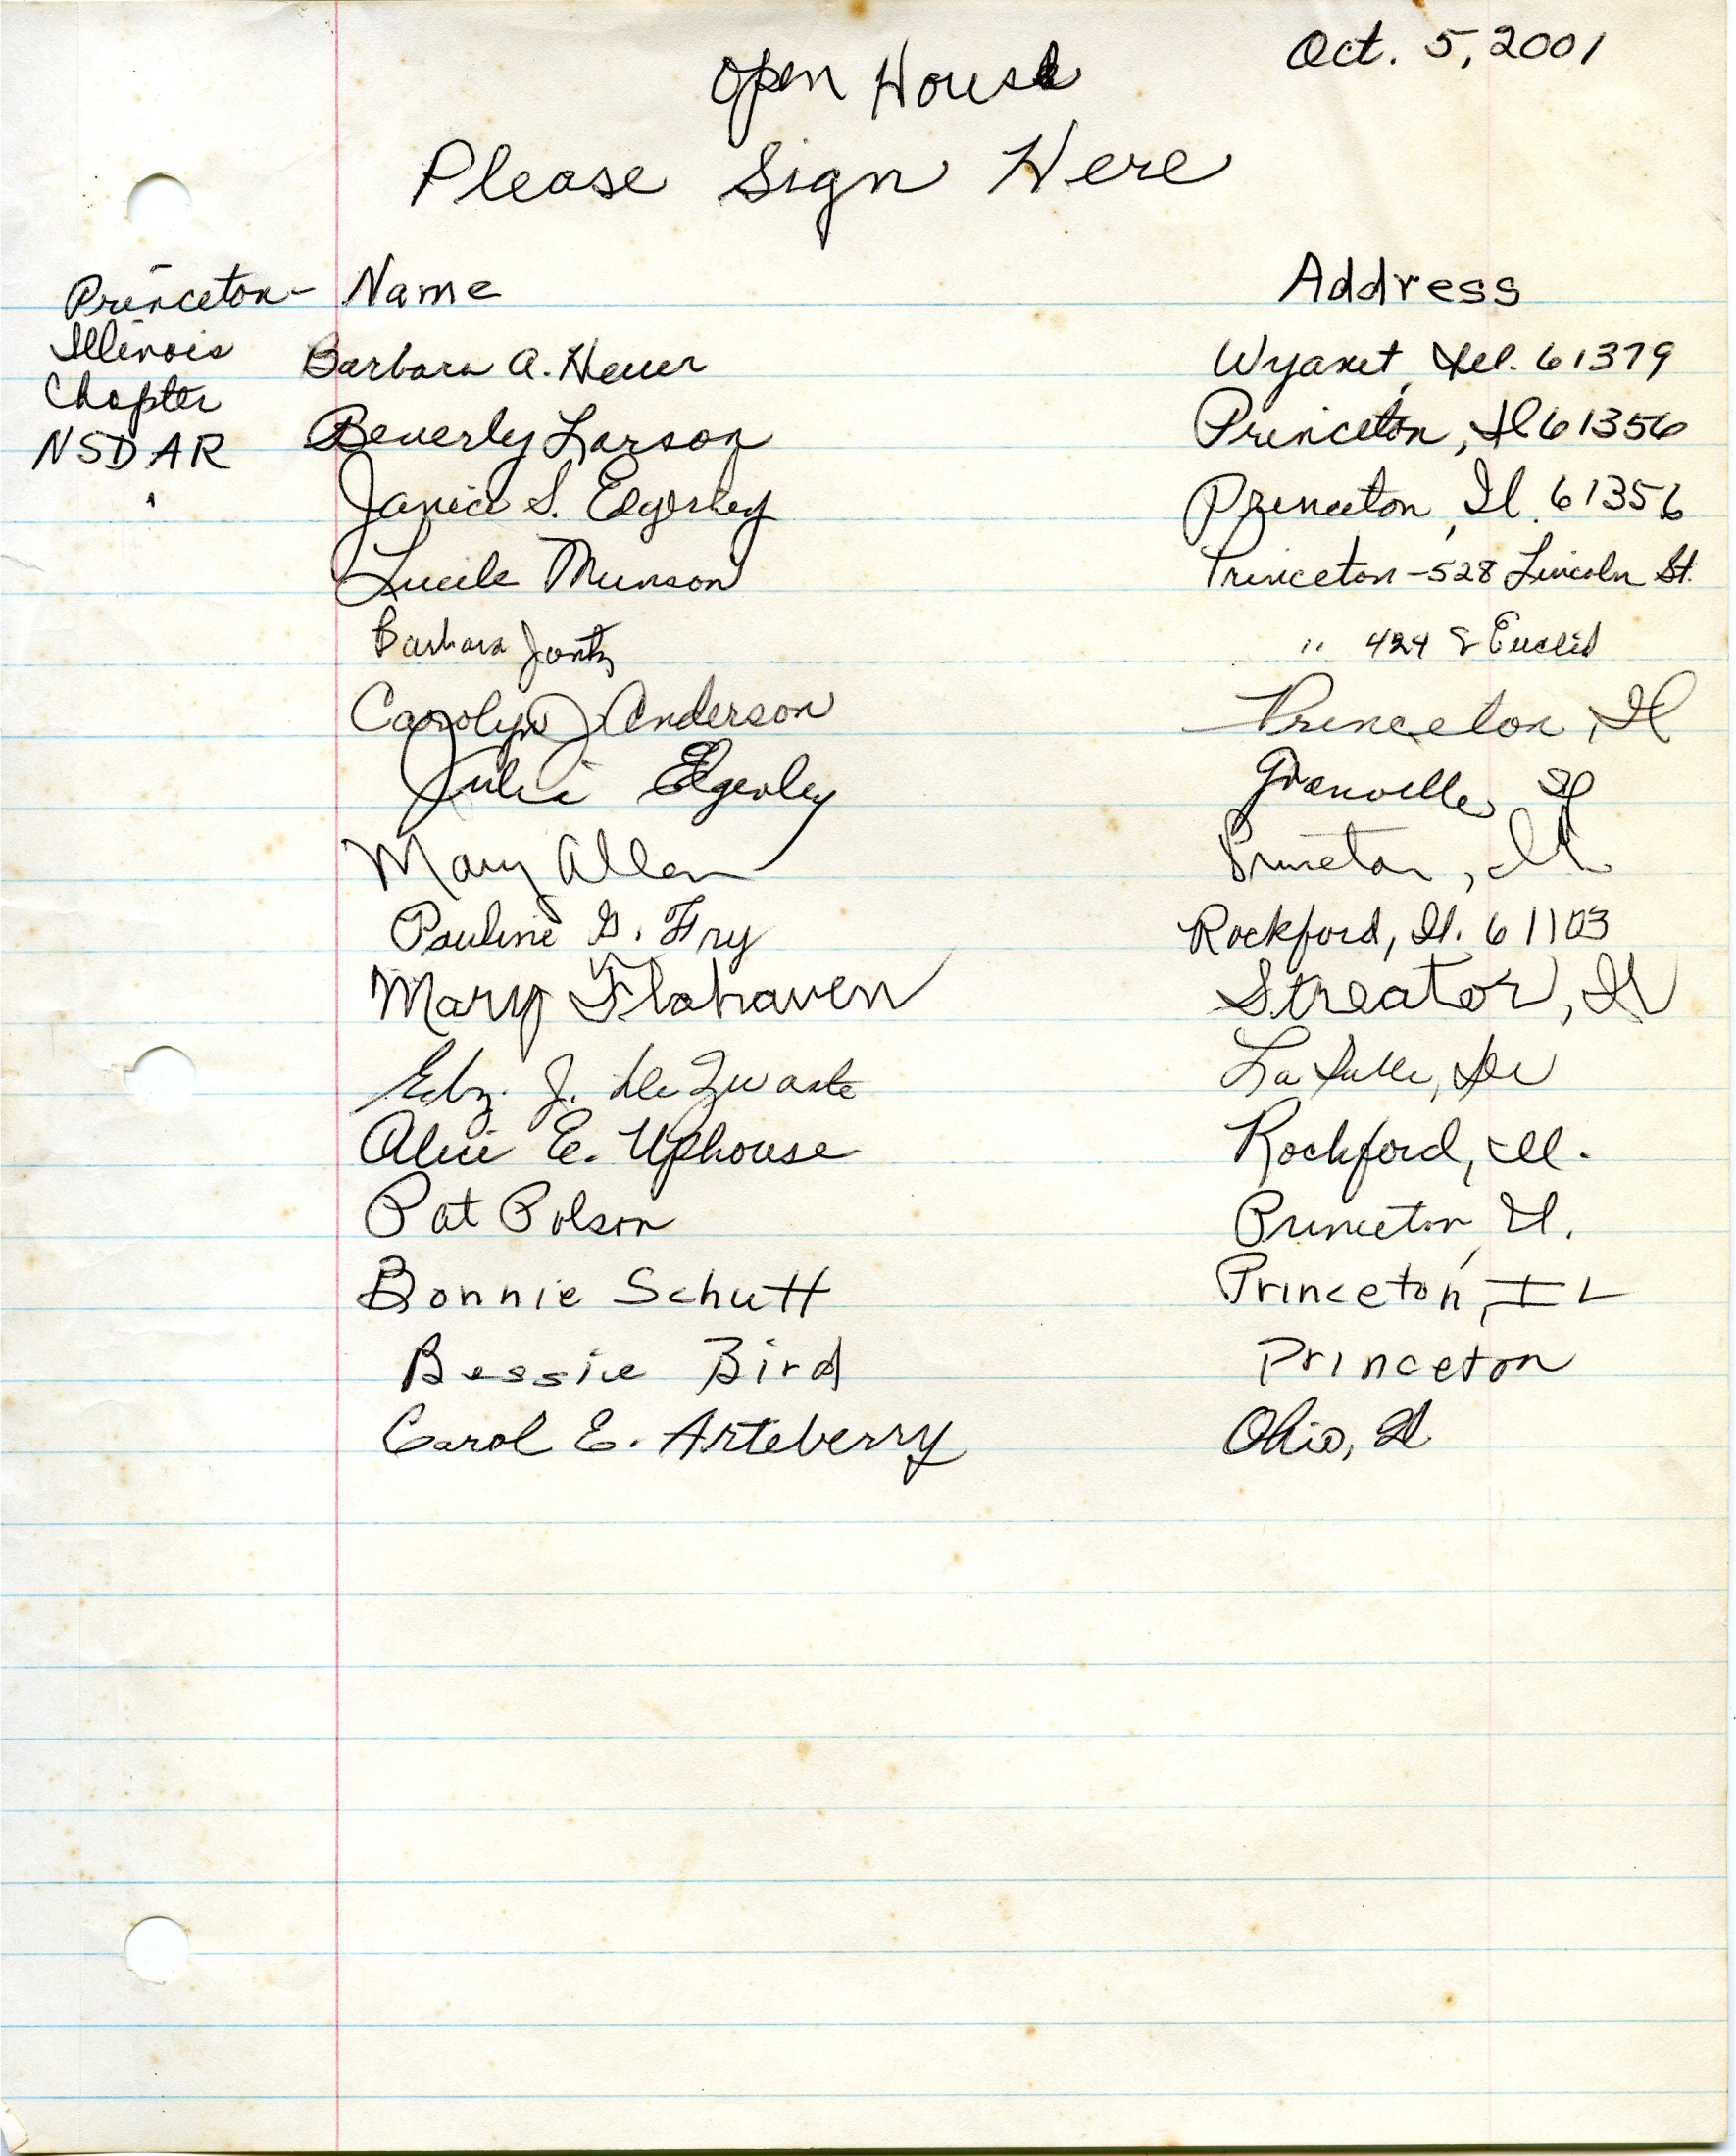 Oct. 5, 2001
Open House
Please Sign Here
Princeton- Name Address
Illinois
Chapter
NSDAR
Barbara A. Heuer Wyanet, Ill. 61379
Beverly Larson Princeton, Il 61356
Janice S. Edgerley Princeton, Il. 61356
Lucile Munson Princeton - 528 Lincoln St.
Barbara Jontz " 424 S Euclid
Carolyn J Anderson Princeton, Il
Julie Edgerley Granville, Il
Mary Allen Princeton, Il
Pauline G. Fry Rockford, Il. 61103
Mary Flahaven Streator, Il
J. De Zwarte La Salle, Ill
Alice E. Uphouse Rockford, Ill.
Pat Polson Princeton, Il.
Bonnie Schutt Princeton, IL
Bessie Bird Princeton
Carol E. Arteberry Ohio, Il